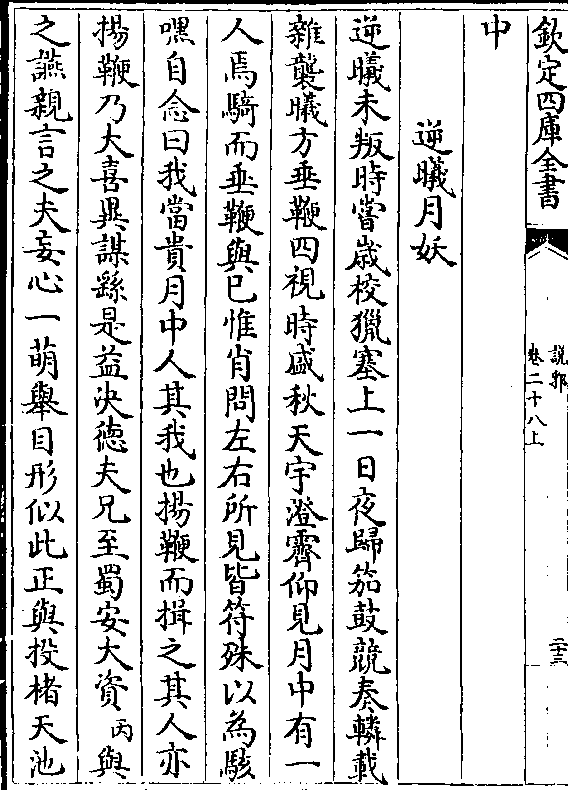 欽定四庫全書
說郛
卷二十八上
二十三
中
逆曦月妖
逆曦未叛時嘗歲校獵塞上一日夜歸笳鼓競奏轔載
雜襲曦方垂鞭四視時盛秋天宇澄霽仰見月中有一
人焉騎而垂鞭與已惟肖問左右所見皆符殊以為駭
嘿自念曰我當貴月中人其我也揚鞭而揖之其人亦
揚鞭乃大喜異謀繇是益決徳夫兄至蜀安大資丙與
之讌親言之夫妄心一萌舉目形似此正與投楮天池